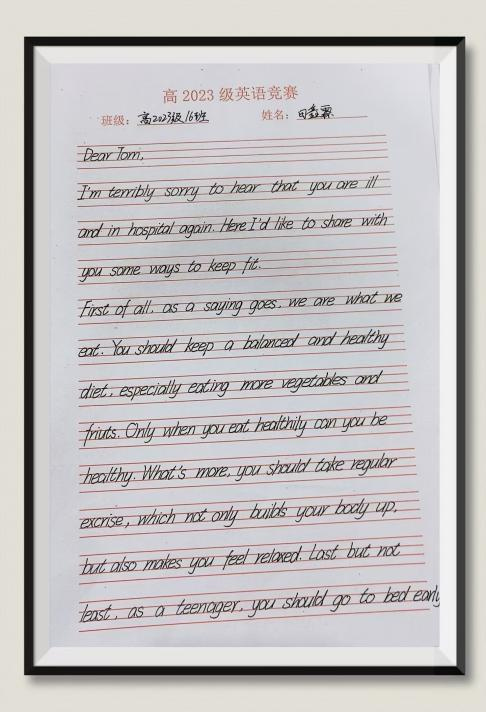 高 2023 级英语竞赛
班级：高2023级16班 姓名：田
Dear Tom,
I'm terribly sorry to hear that you are ill
and in hospital again. Here I'd like to share with
you some ways to keep fit.
First of all, as a saying goes, we are what we
eat. You should keep a balanced and healthy
diet, especially eating more vegetables and
friuts. Only when you eat healthily can you be
healthy. What's more, you should take regular
excrise, which not only builds your body up,
but also makes you feel relaxed. Last but not
least, as a teenager, you should go to bed early